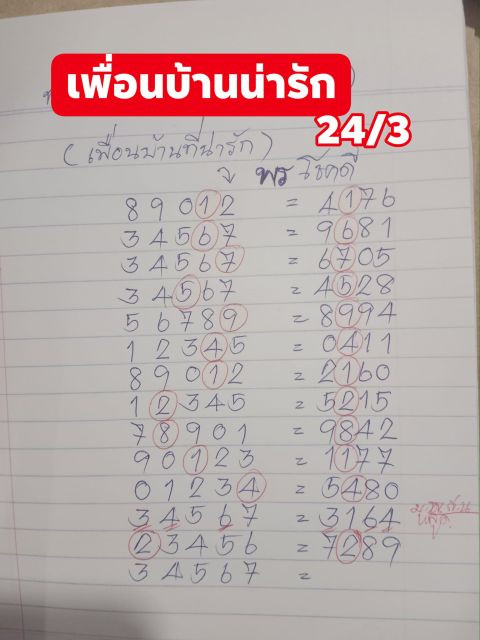 เพื่อนบ้านน่ารัก
24/3
(เพื่อนบ้านที่น่ารัก)
พร โชคดี
89012 = 4176
34567 = 9681
34567 = 6705
34567 = 4528
56789 = 8994
12345 = 0411
89012 = 2160
12345 = 5215
78901 = 9842
90123 = 1177
01234 = 5480
34567 = 3164
23456 = 7289
34567 =